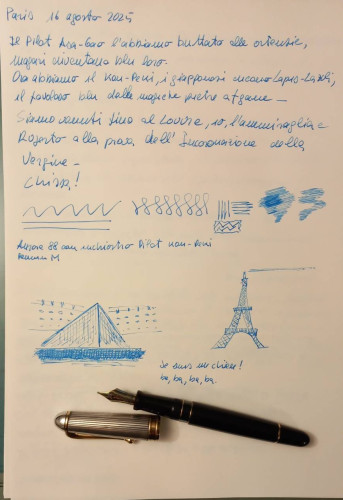 Paris 16 agosto 2025
Il Pilot Asa-Gao l'abbiamo buttato alle ortensie,
magari diventano blu loro.
Ora abbiamo il Kon-Peki, i giapponesi dicono Lapis-Lazuli,
il favoloso blu delle magiche pietre afgane -
Siamo venuti fino al Louvre, io, l'ammiraglia e
Rogerto alla prova dell'Incoronazione della
Vergine -
Chissà!
Aurora 88 con inchiostro Pilot Kon-Peki
M
Je suis un chien!
ba, ba, ba, ba.